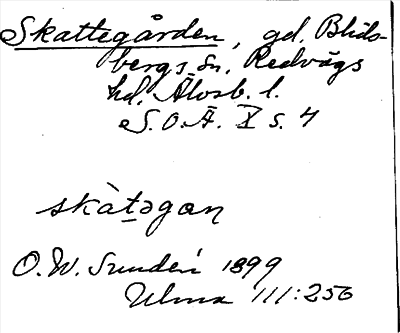 Skattegården, gd. Blids-
bergs sn. Redvägs
hd. Älvsb. l.
S.O.Ä. X s. 4
skàt̠əgan
O.W. Sundén 1899
Ulma 111:256